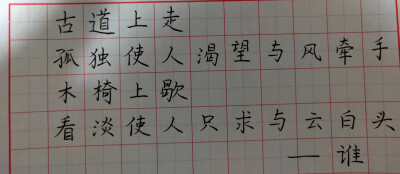 古道上走
孤独使人渴望与风牵手
木椅上歇
看淡使人只求与云白头
—谁